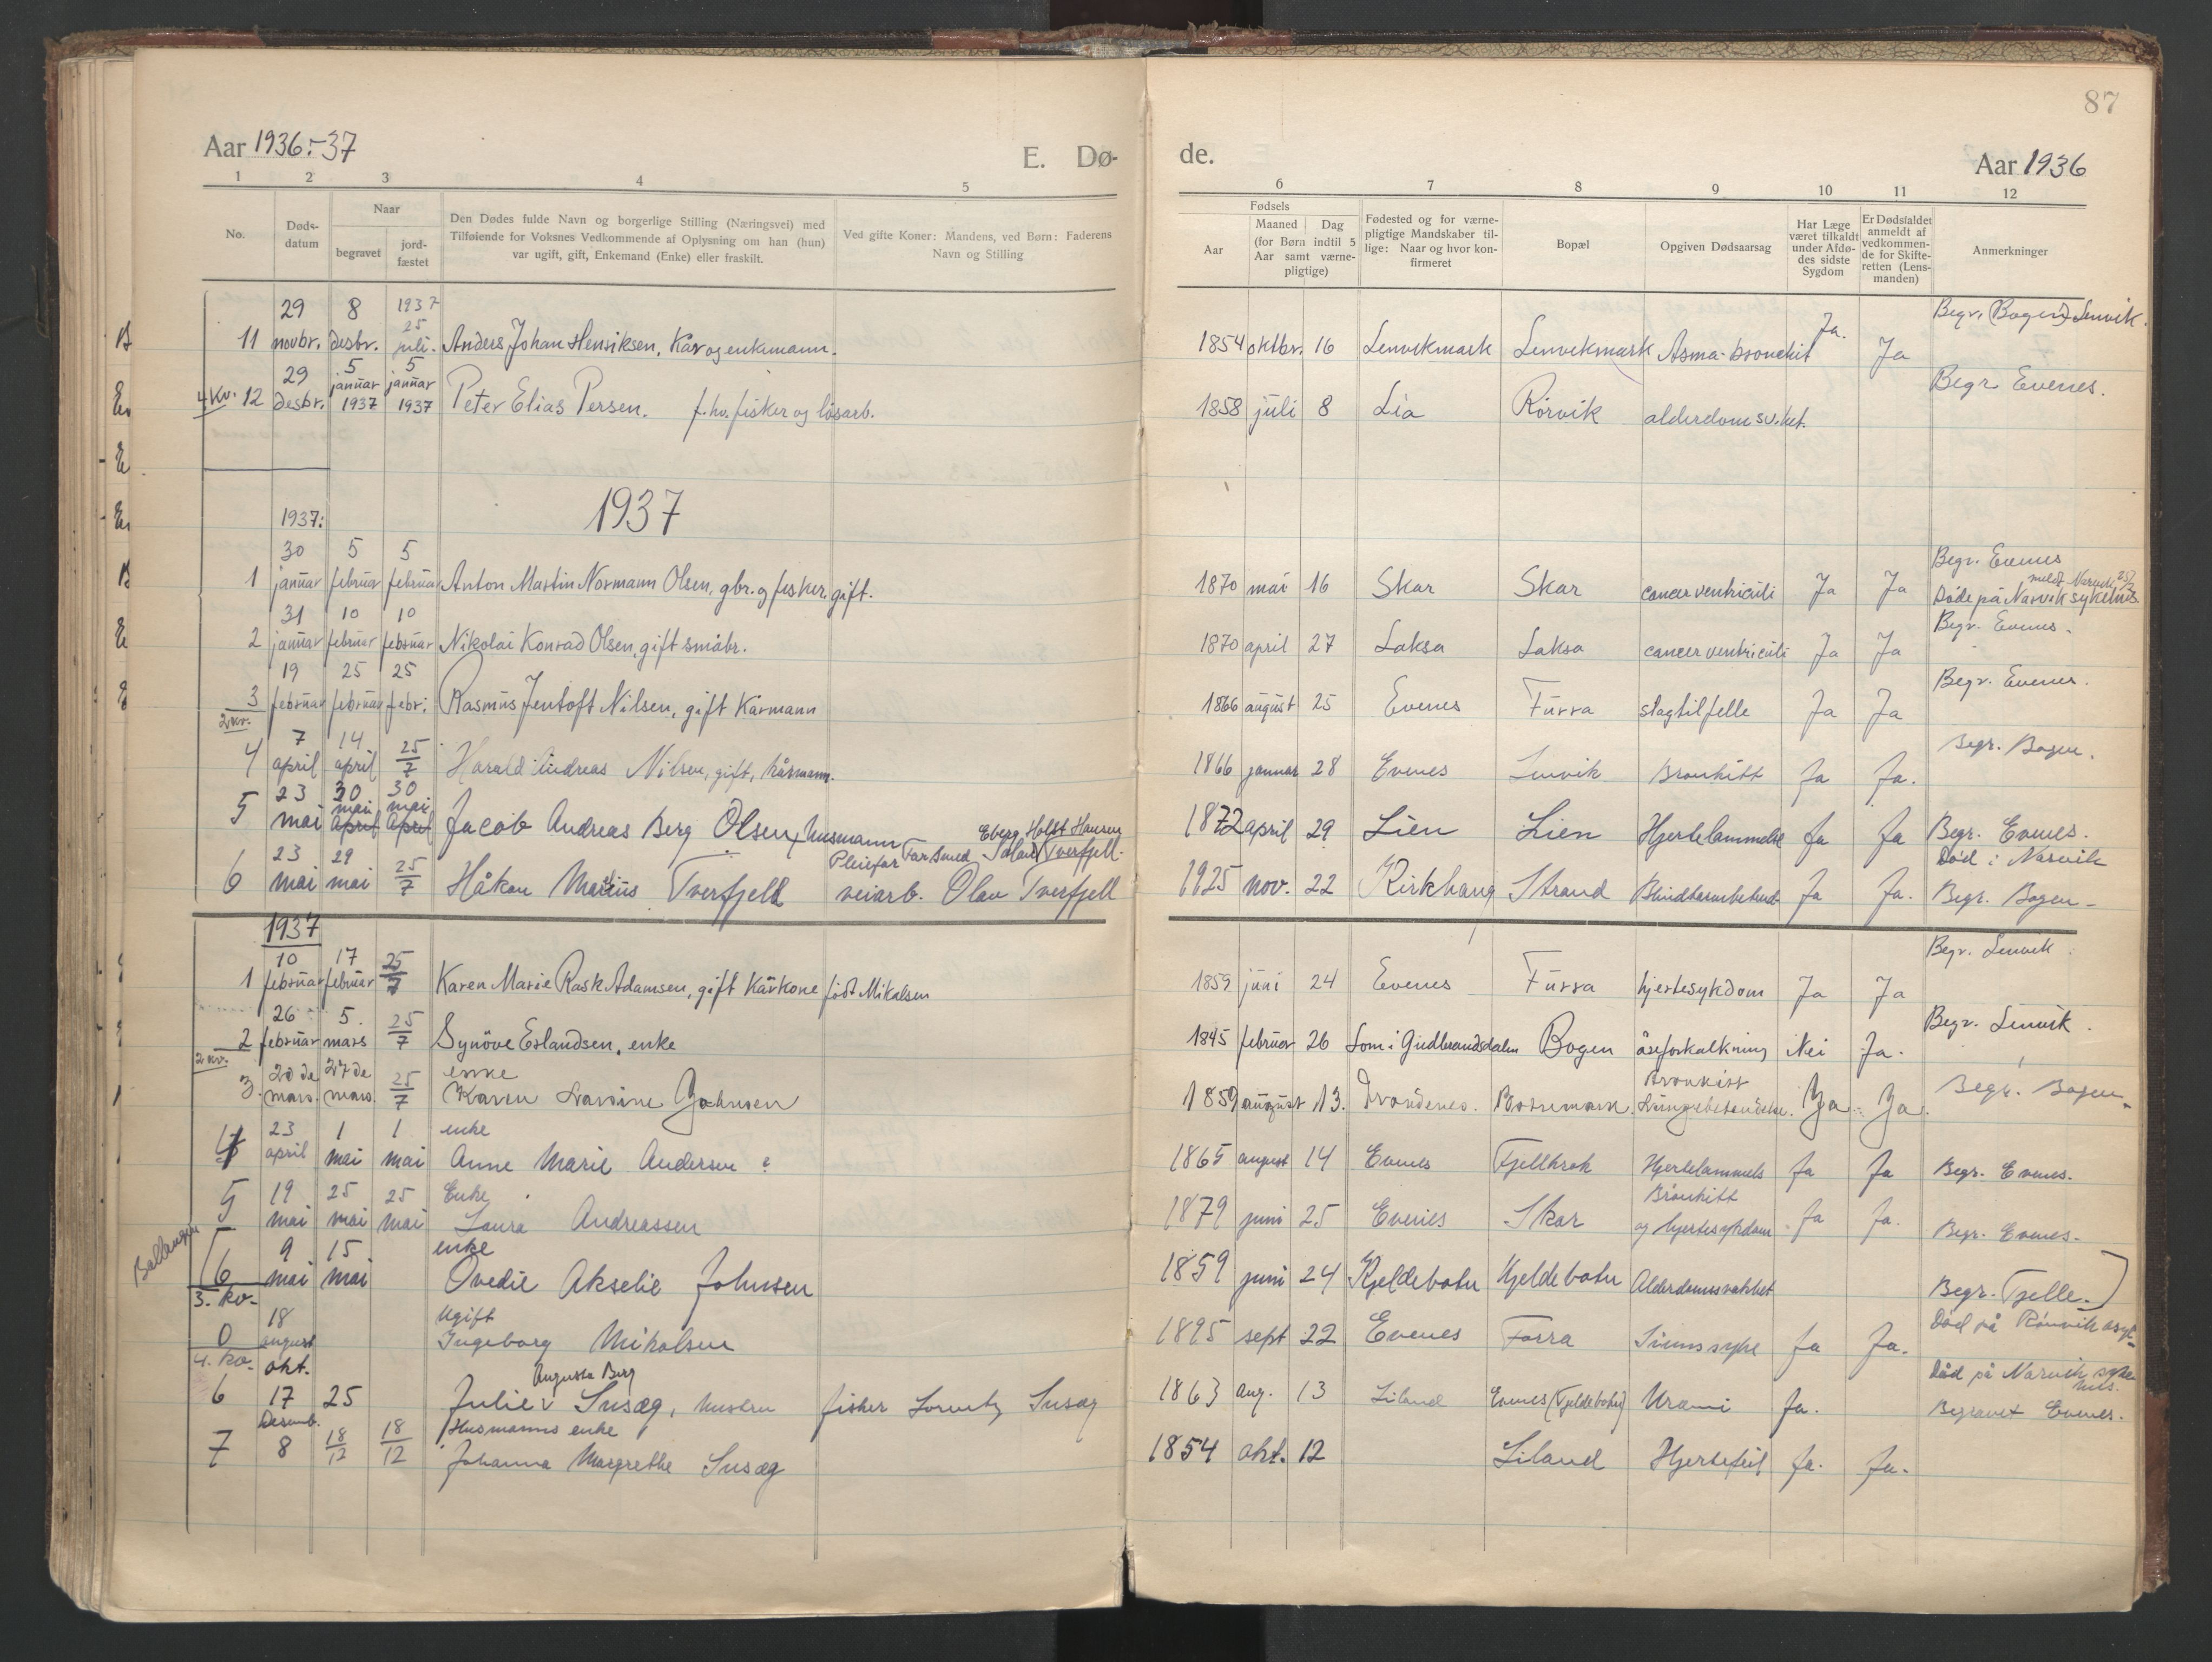 87
Aar 1936-37
E. Dø-
de.
Aar 1936
1 2 3 4 5 6 7 8 9 10 11 12
No.
Døds-
datum
Naar
begravet
jord-
fæstet
Den Dødes fulde Navn og borgerlige Stilling (Næringsvei) med
Tilføiende for Voksnes Vedkommende af Oplysning om han (hun)
var ugift, gift, Enkemand (Enke) eller fraskilt.
Ved gifte Koner: Mandens, ved Børn: Faderens
Navn og Stilling
Fødsels
Aar
Maaned Dag
(for Børn indtil 5
Aar samt værne-
pligtige)
Fødested og for værne-
pligtige Mandskaber til-
lige: Naar og hvor kon-
firmeret
Bopæl
Opgiven Dødsaarsag
Har Læge
været tilkaldt
under Afdø-
des sidste
Sygdom
Er Dødsfaldet
anmeldt af
vedkommen-
de for Skifte-
retten (Lens-
manden)
Anmerkninger
29 8 1937
25
Begr. (Bogen) Lenvik.
11 novbr. desbr. juli. Anders Johan Henriksen, Kår og enkemann. 1854 oktbr. 16 Lenvikmark Lenvikmark Asma-bronchit Ja. Ja
29 5 januar 5 januar
Begr. Evenes.
4. kv. 12 desbr. 1937 1937 Peter Elias Persen. f.hv. fisker og løsarb. 1858 juli 8 Lia Rørvik alderdomsv.het.
1937
1937:
30 5 5
Begr. Evenes
1 januar februar februar Anton Martin Normann Olsen, gbr. og fisker. gift. 1870 mai 16 Skar Skar cancer ventriculi Ja Ja Døde på Narvik sykehus
meldt Narvik
31 10 10
Begr. Evenes.
2 januar februar februar Nikolai Konrad Olsen, gift småbr. 1870 april 27 Laksa Laksa cancer ventriculi Ja Ja
19 25 25
Begr. Evenes.
3 februar februar febr. Rasmus Jentoft Nilsen, gift Kårmann 1866 august 25 Evenes Furra slagtilfelle Ja Ja
2. kv.
7 14 25
Begr. Bogen.
4 april april 7 Harald Andreas Nilsen, gift, kårmann. 1866 januar 28 Evenes Lenvik Bronkitt Ja Ja.
23 30 30
mai mai
5 mai april april Jacob Andreas Berg Olsen, husmann 1872 april 29 Lien Lien Hjertelammelse Ja Ja Begr. Evenes.
Far: Smed Eberg Holst Hansen
Pleiefar
23 29 25
Død i Narvik
6 mai mai 7 Håkon Marius Tverfjell veiarb. Olav Tverfjell 1925 nov. 22 Kirkhaug Strand Blindtarmbetend. Ja Ja. Begr. Bogen-
1937
10 17 25
Begr. Lenvik
1 februar februar 7 Karen Marie Rask Adamsen, gift Kårkone født Mikalsen 1859 juni 24 Evenes Furra hjertesykdom Ja Ja
26 5. 25
Begr. Lenvik.
2 februar mars 7 Synöve Erlandsen, enke 1845 februar 26 Lom i Gudbrandsdalen Bogen åreforkalkning Nei Ja.
2. kv.
20de 27de 25 enke
Bronkitt
3. mars. mars. 7 Karen Narvine Johnsen 1859 august 13. Trondenes. Bossemark. Lungebetendelse. Ja Ja. Begr. Bogen-
23 1 1 enke
4 april mai mai Anne Marie Andersen 1865 august 14 Evenes Fjellkrok Hjertelammels Ja Ja Begr. Evenes.
19 25 25 Enke
Bronkitt
5 mai mai mai Laura Andreassen 1879 juni 25 Evenes Skar og hjertesykdom Ja Ja. Begr. Evenes-
Ballangen
9 15 enke
6 mai mai Ovedie Akselie Johnsen 1859 juni 24 Kjeldebotn Kjeldebotn Alderdomssvakhet Begr. Fjelle.
3. kv-
18 Ugift
Død på Rønvik asyl-
0 august Ingeborg Mikalsen 1895 sept 22 Evenes Forra Sinnssyke Ja Ja.
4. kv- okt.
Augusta Berg
Død på Narvik syke
hus.
6 17 25 Julie Susæg, hustru fisker Lorentz Susæg 1863 aug. 13 Liland Evenes (Kjeldebotn) Urami Ja. Begravet Evenes.
Desemb. Husmanns enke
7 8 18/12 18/12 Johanna Margrethe Susæg 1854 okt. 12 Liland Hjertefeil Ja. Ja.